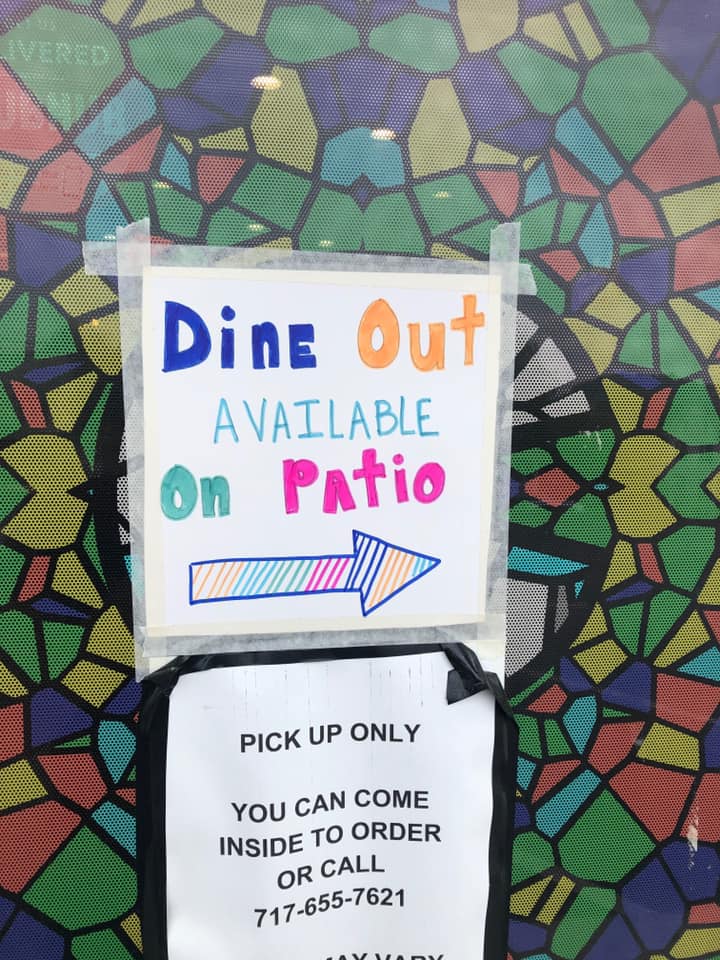 IVERED
DinE Out
AVAILABLE
On Patio
PICK UP ONLY
YOU CAN COME
INSIDE TO ORDER
OR CALL
717-655-7621
MAY VARY